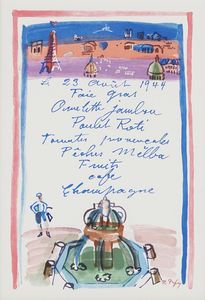 Le 23 Août 1944
Foie gras
Omelette jambon
Poulet Roti
Tomates provencales
Pêches Melba
Fruits
cafe
Champagne